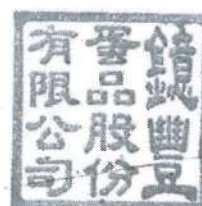 鐿豐
蛋品股份
有限公司